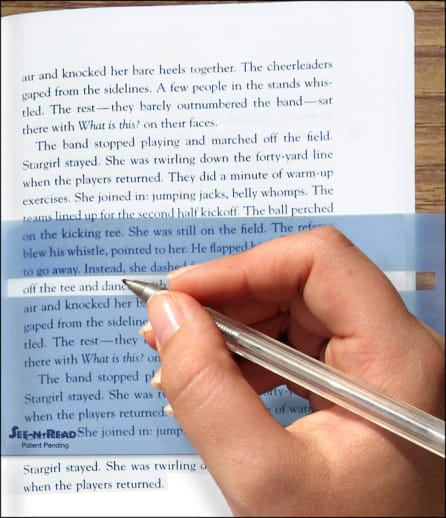 air and knocked her bare heels together. The cheerleaders
gaped from the sidelines. A few people in the stands whis-
tled. The rest—they barely outnumbered the band—sat
there with What is this? on their faces.
The band stopped playing and marched off the field.
Stargirl stayed. She was twirling down the forty-yard line
when the players returned. They did a minute of warm-up
exercises. She joined in: jumping jacks, belly whomps. The
teams lined up for the second half kickoff. The ball perched
on the kicking tee. She was still on the field. The
blew his whistle, pointed to her. He flapped
to go away. Instead, she dashed
off the tee and
air and knocked her
gaped from the
tled. The rest—they
there with What is this?
The band stopped
Stargirl stayed. She was
when the players returned of
SEE-N-READ She joined in:
Patent Pending
Stargirl stayed. She was twirling
when the players returned.